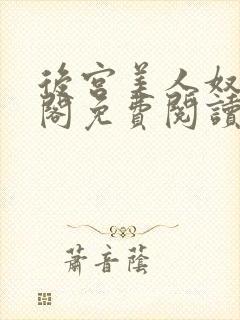 後宮美人奴
閣免費閱讀
蕭音蔭